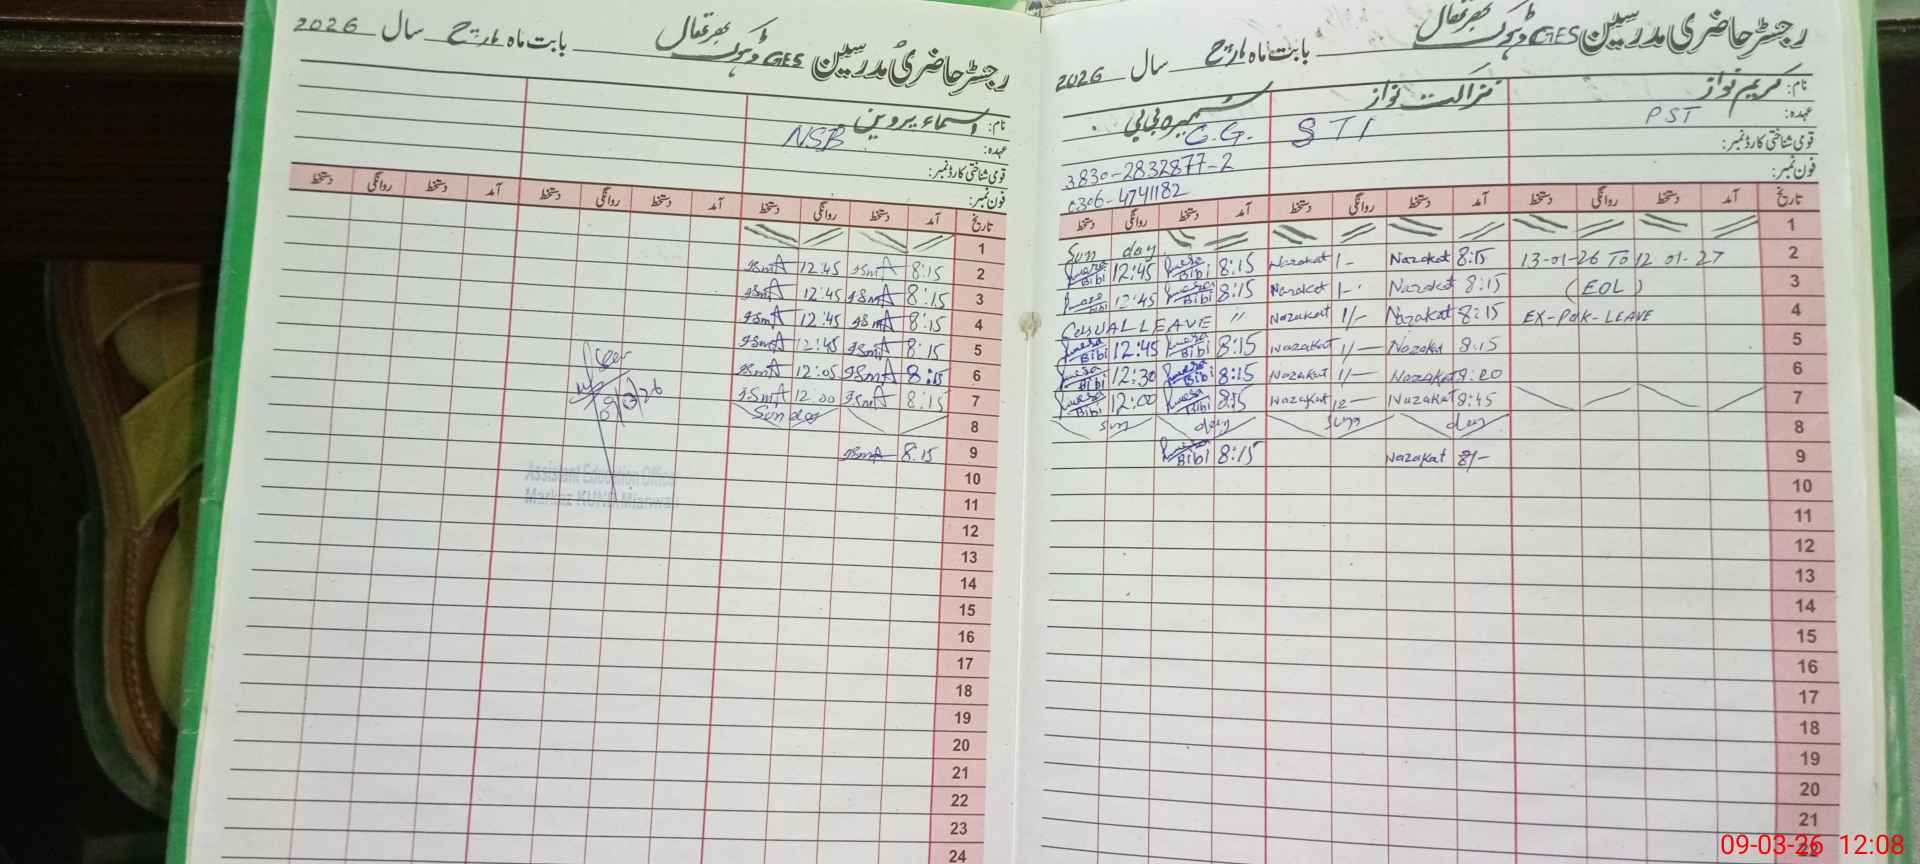 رجسٹر حاضری مدرسین GES ڈھوک بھرتھال بابت ماہ مارچ سال 2026
نام: کریم نواز نزاکت نواز سمیرہ بی بی
عہدہ: PST STI C.G.
قومی شناختی کارڈ نمبر: 3830-2832877-2
فون نمبر: 0306-4741182
تاریخ آمد دستخط روانگی دستخط آمد دستخط روانگی دستخط آمد دستخط روانگی دستخط
1 Sun day
2 13-01-26 To 12 01-27 8:15 Nazakat 1- Nazakat 8:15 Bibi 12:45 Bibi
3 (EOL) 8:15 Nazakat 1- Nazakat 8:15 Bibi 12:45 Bibi
4 EX-Pak-LEAVE 8:15 Nazakat 1/- Nazakat CASUAL LEAVE "
5 8:15 Nazakat 1/- Nazakat 8:15 Bibi 12:45 Bibi
6 8:20 Nazakat 1/- Nazakat 8:15 Bibi 12:30 Bibi
7 8:45 Nazakat 12- Nazakat 8:15 Bibi 12:00 Bibi
8 Sun day Sun day
9 8/- Nazakat 8:15 Bibi
10
11
12
13
14
15
16
17
18
19
20
21
22
رجسٹر حاضری مدرسین GES ڈھوک بھرتھال بابت ماہ مارچ سال 2026
نام: اسماء پروین
عہدہ: NSB
قومی شناختی کارڈ نمبر:
فون نمبر:
تاریخ آمد دستخط روانگی دستخط آمد دستخط روانگی دستخط آمد دستخط روانگی دستخط
1
2 8:15 12:45
3 8:15 12:45
4 8:15 12:45
5 8:15 12:45
6 8:15 12:05
7 8:15 12:00
8 Sunday
9 8:15
10
11
12
13
14
15
16
17
18
19
20
21
22
23
24
Assistant Education Officer
Markaz KUNDI Mianwali
09-03-26 12:08